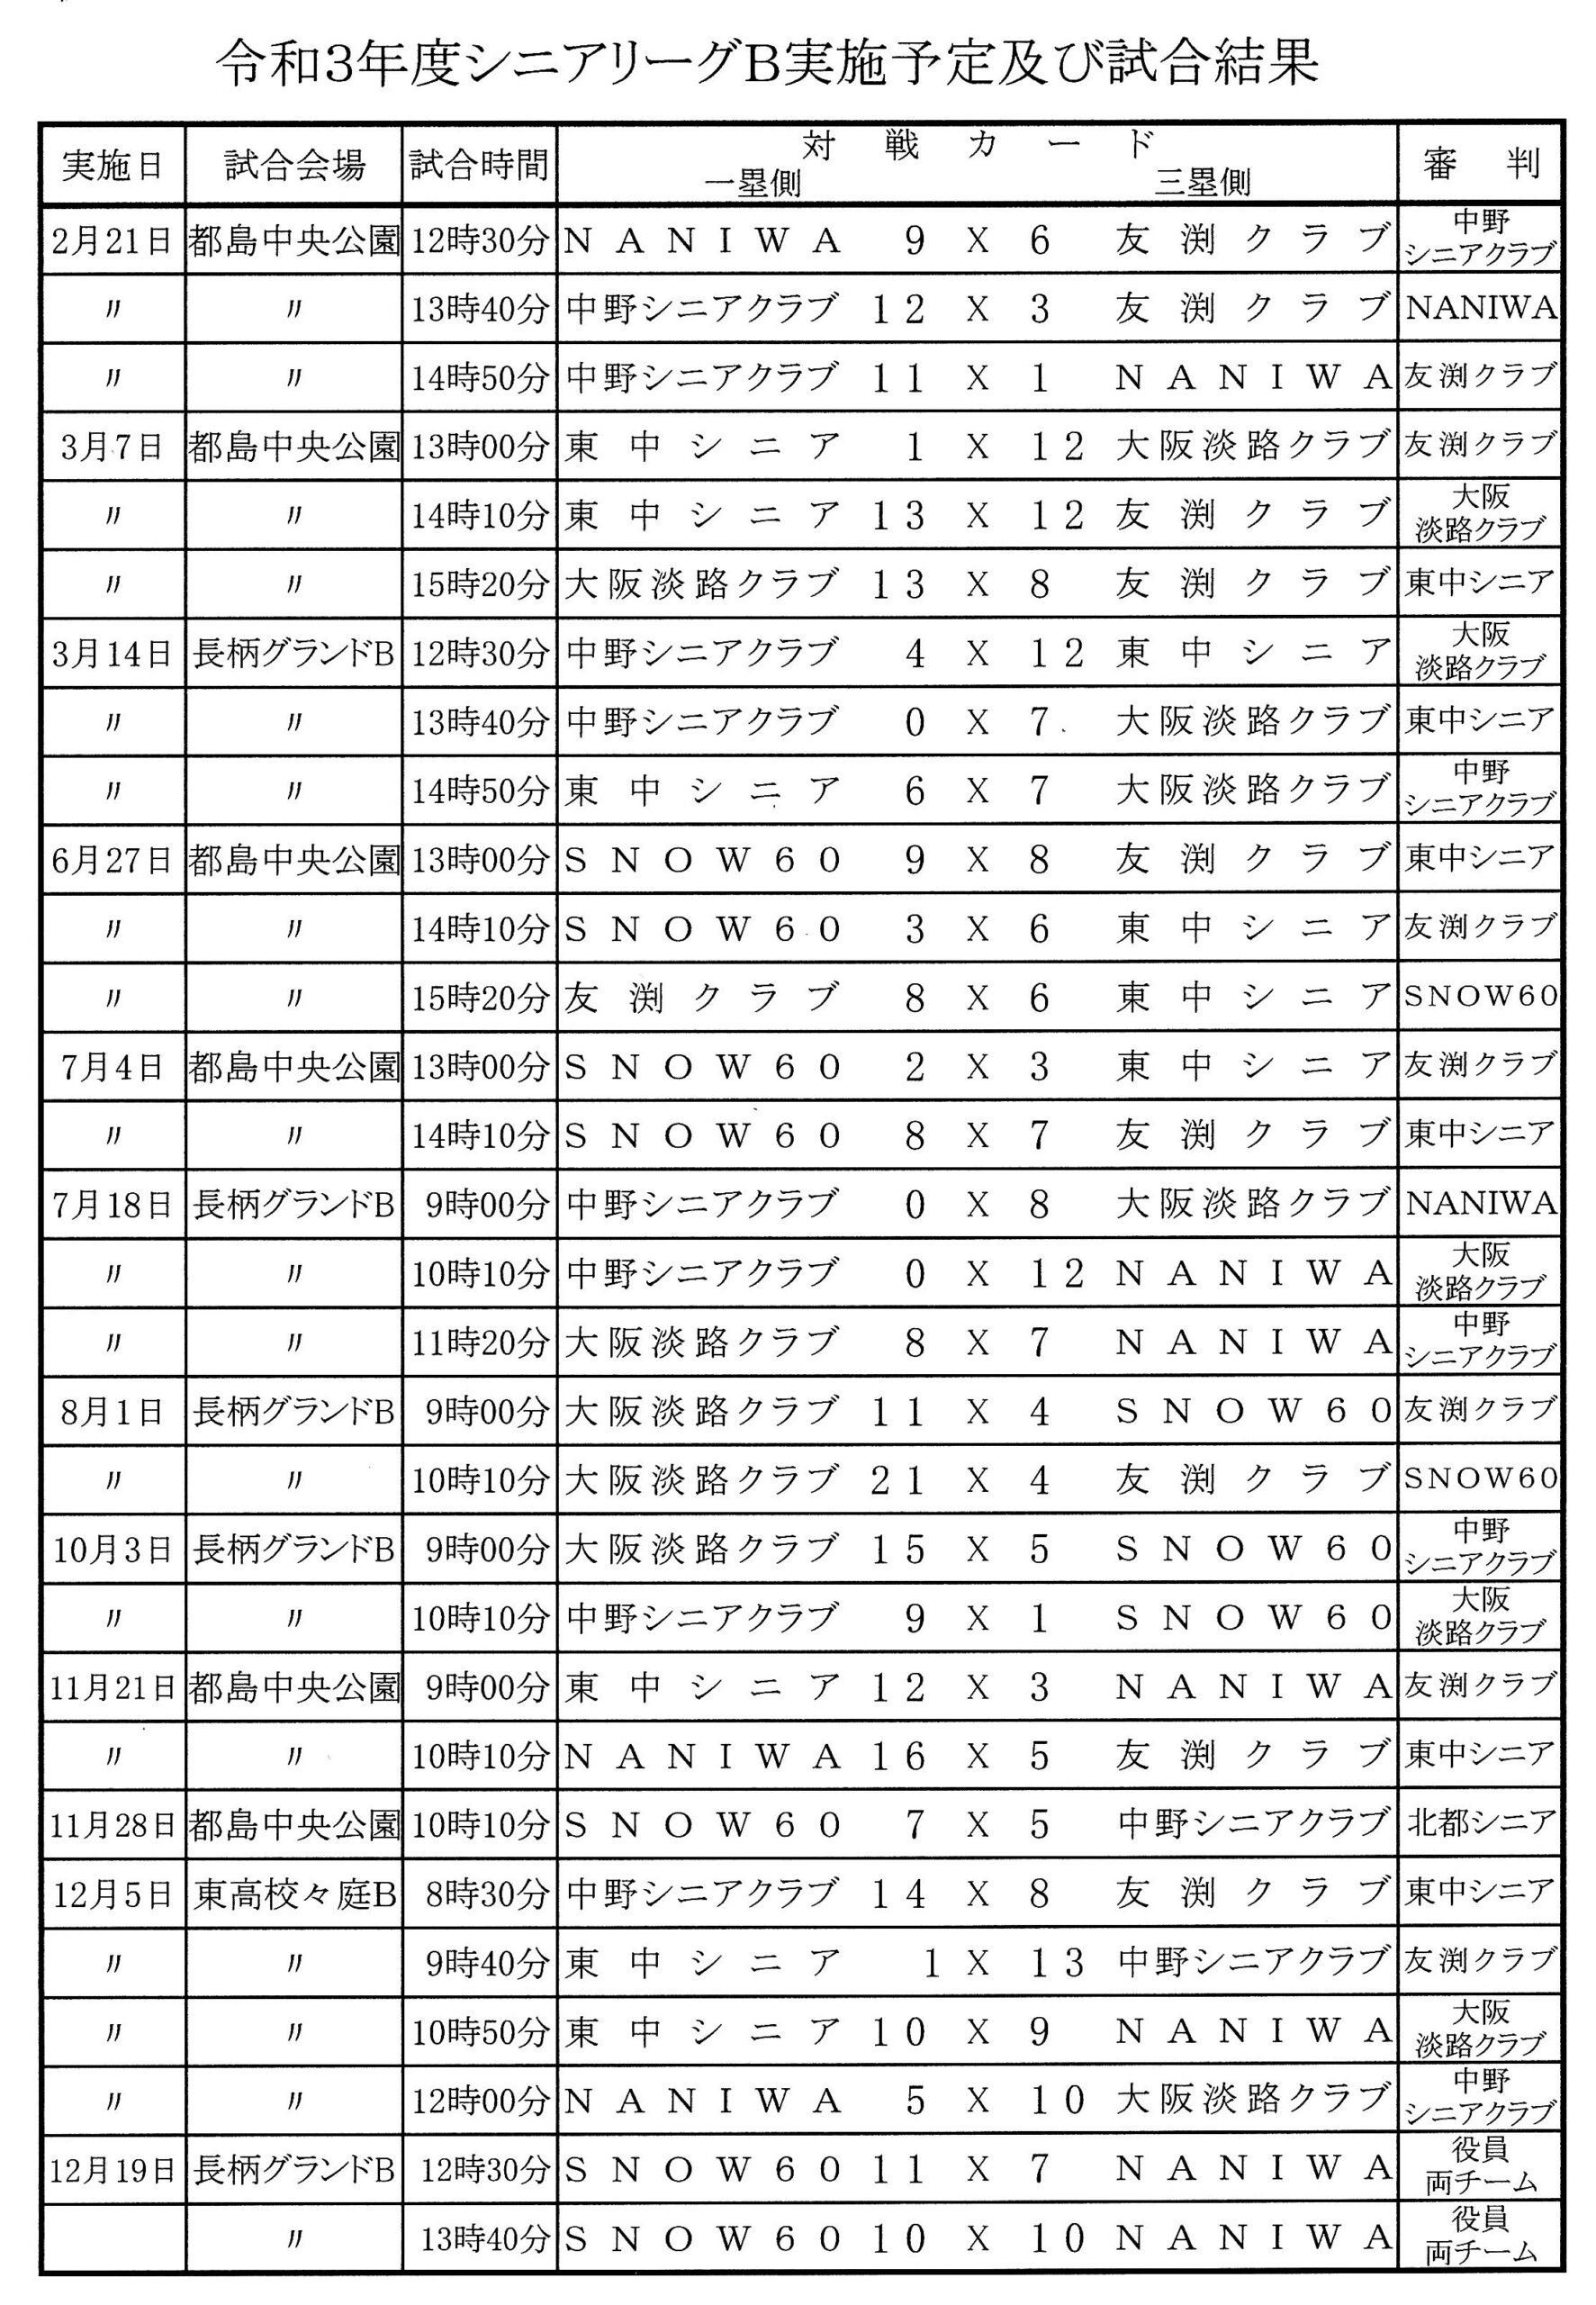 令和3年度シニアリーグB実施予定及び試合結果
実施日 試合会場 試合時間 対戦カード 審判
一塁側 三塁側
2月21日 都島中央公園 12時30分 NANIWA 9 X 6 友渕クラブ 中野シニアクラブ
〃 〃 13時40分 中野シニアクラブ 12 X 3 友渕クラブ NANIWA
〃 〃 14時50分 中野シニアクラブ 11 X 1 NANIWA 友渕クラブ
3月7日 都島中央公園 13時00分 東中シニア 1 X 12 大阪淡路クラブ 友渕クラブ
〃 〃 14時10分 東中シニア 13 X 12 友渕クラブ 大阪淡路クラブ
〃 〃 15時20分 大阪淡路クラブ 13 X 8 友渕クラブ 東中シニア
3月14日 長柄グランドB 12時30分 中野シニアクラブ 4 X 12 東中シニア 大阪淡路クラブ
〃 〃 13時40分 中野シニアクラブ 0 X 7 大阪淡路クラブ 東中シニア
〃 〃 14時50分 東中シニア 6 X 7 大阪淡路クラブ 中野シニアクラブ
6月27日 都島中央公園 13時00分 SNOW60 9 X 8 友渕クラブ 東中シニア
〃 〃 14時10分 SNOW60 3 X 6 東中シニア 友渕クラブ
〃 〃 15時20分 友渕クラブ 8 X 6 東中シニア SNOW60
7月4日 都島中央公園 13時00分 SNOW60 2 X 3 東中シニア 友渕クラブ
〃 〃 14時10分 SNOW60 8 X 7 友渕クラブ 東中シニア
7月18日 長柄グランドB 9時00分 中野シニアクラブ 0 X 8 大阪淡路クラブ NANIWA
〃 〃 10時10分 中野シニアクラブ 0 X 12 NANIWA 大阪淡路クラブ
〃 〃 11時20分 大阪淡路クラブ 8 X 7 NANIWA 中野シニアクラブ
8月1日 長柄グランドB 9時00分 大阪淡路クラブ 11 X 4 SNOW60 友渕クラブ
〃 〃 10時10分 大阪淡路クラブ 21 X 4 友渕クラブ SNOW60
10月3日 長柄グランドB 9時00分 大阪淡路クラブ 15 X 5 SNOW60 中野シニアクラブ
〃 〃 10時10分 中野シニアクラブ 9 X 1 SNOW60 大阪淡路クラブ
11月21日 都島中央公園 9時00分 東中シニア 12 X 3 NANIWA 友渕クラブ
〃 〃 10時10分 NANIWA 16 X 5 友渕クラブ 東中シニア
11月28日 都島中央公園 10時10分 SNOW60 7 X 5 中野シニアクラブ 北都シニア
12月5日 東高校々庭B 8時30分 中野シニアクラブ 14 X 8 友渕クラブ 東中シニア
〃 〃 9時40分 東中シニア 1 X 13 中野シニアクラブ 友渕クラブ
〃 〃 10時50分 東中シニア 10 X 9 NANIWA 大阪淡路クラブ
〃 〃 12時00分 NANIWA 5 X 10 大阪淡路クラブ 中野シニアクラブ
12月19日 長柄グランドB 12時30分 SNOW60 11 X 7 NANIWA 役員両チーム
〃 13時40分 SNOW60 10 X 10 NANIWA 役員両チーム